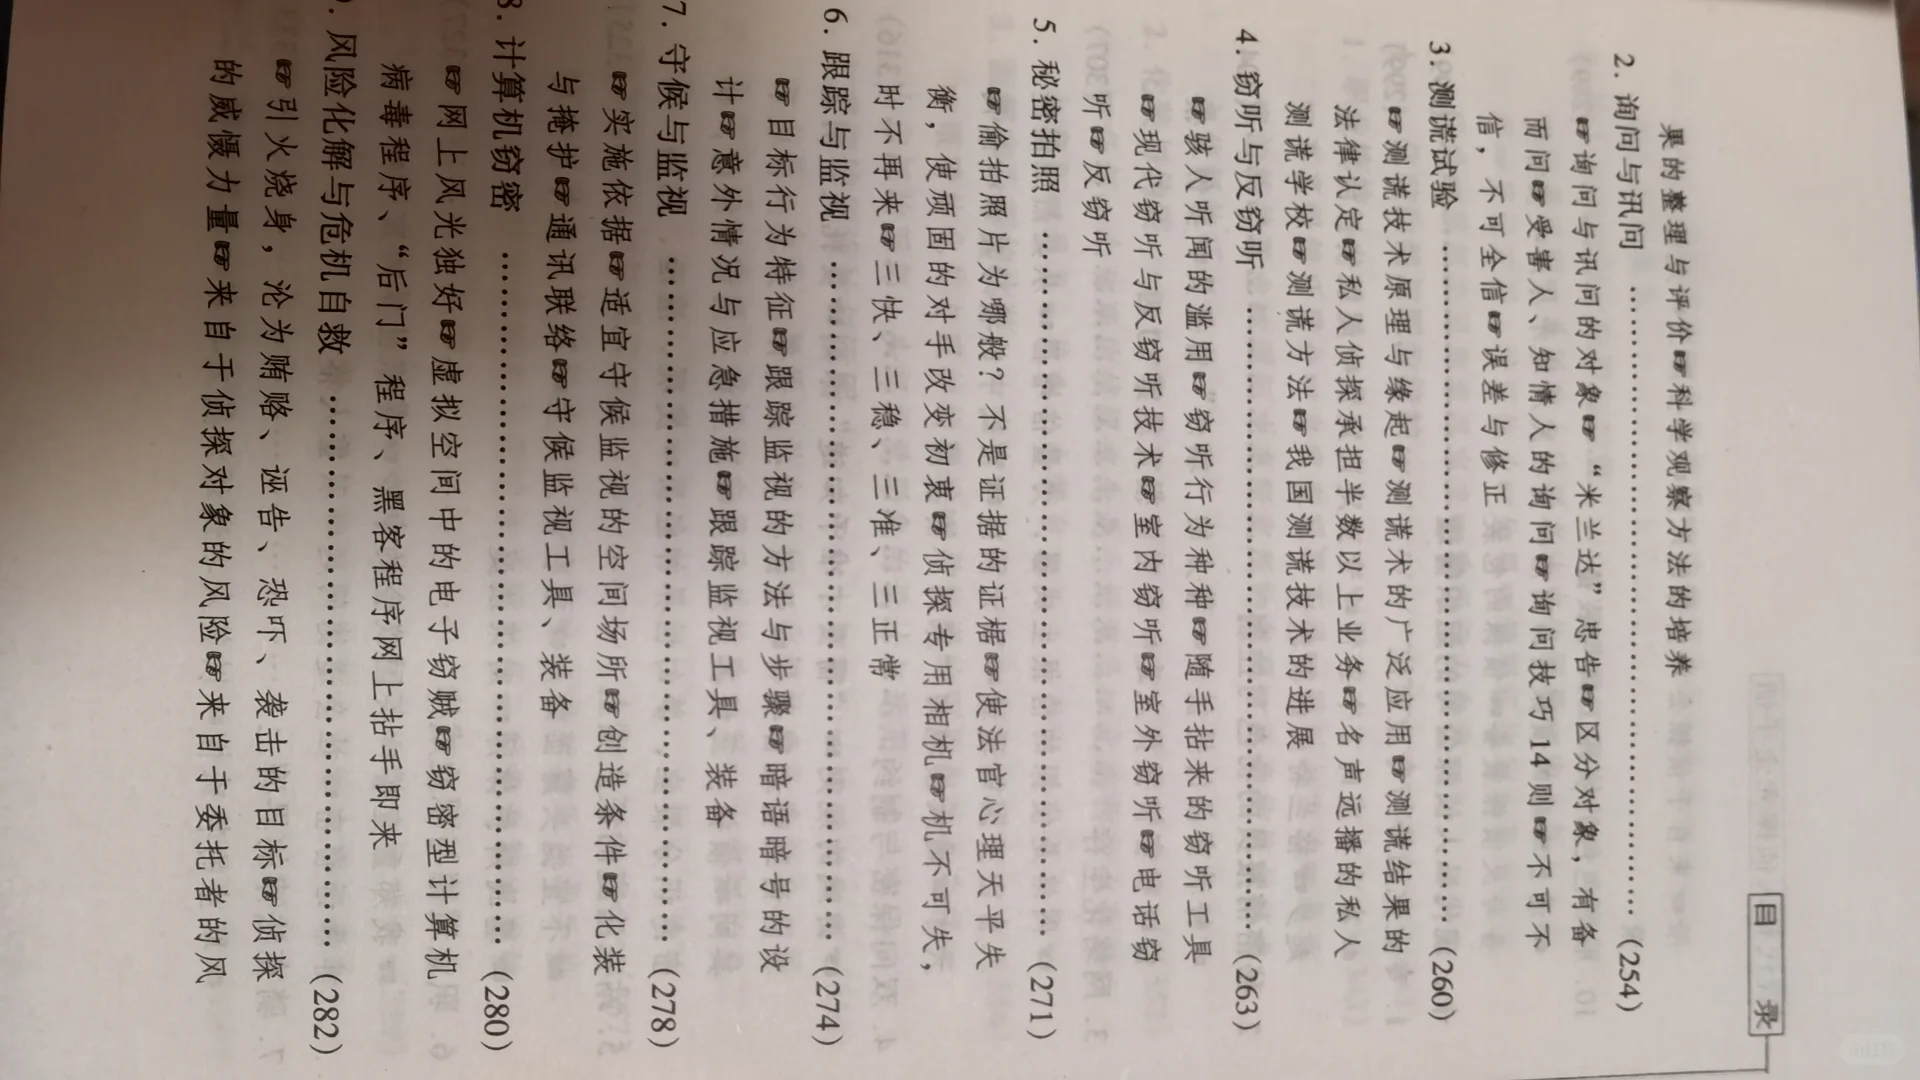 目
录
果的整理与评价☞科学观察方法的培养
2. 询问与讯问 …………………………………… (254)
☞询问与讯问的对象☞“米兰达”忠告☞区分对象，有备
而问☞受害人、知情人的询问☞询问技巧14则☞不可不
信，不可全信☞误差与修正
3. 测谎试验 …………………………………… (260)
☞测谎技术原理与缘起☞测谎术的广泛应用☞测谎结果的
法律认定☞私人侦探承担半数以上业务☞名声远播的私人
测谎学校☞测谎方法☞我国测谎技术的进展
4. 窃听与反窃听 …………………………………… (263)
☞骇人听闻的滥用☞窃听行为种种☞随手拈来的窃听工具
☞现代窃听与反窃听技术☞室内窃听☞室外窃听☞电话窃
听☞反窃听
5. 秘密拍照 …………………………………… (271)
☞偷拍照片为哪般？不是证据的证据☞使法官心理天平失
衡，使顽固的对手改变初衷☞侦探专用相机☞机不可失，
时不再来☞三快、三稳、三准、三正常
6. 跟踪与监视 …………………………………… (274)
☞目标行为特征☞跟踪监视的方法与步骤☞暗语暗号的设
计☞意外情况与应急措施☞跟踪监视工具、装备
7. 守候与监视 …………………………………… (278)
☞实施依据☞适宜守候监视的空间场所☞创造条件☞化装
与掩护☞通讯联络☞守候监视工具、装备
8. 计算机窃密 …………………………………… (280)
☞网上风光独好☞虚拟空间中的电子窃贼☞窃密型计算机
病毒程序、“后门”程序、黑客程序网上拈手即来
. 风险化解与危机自救 …………………………………… (282)
☞引火烧身，沦为贿赂、诬告、恐吓、袭击的目标☞侦探
的威慑力量☞来自于侦探对象的风险☞来自于委托者的风